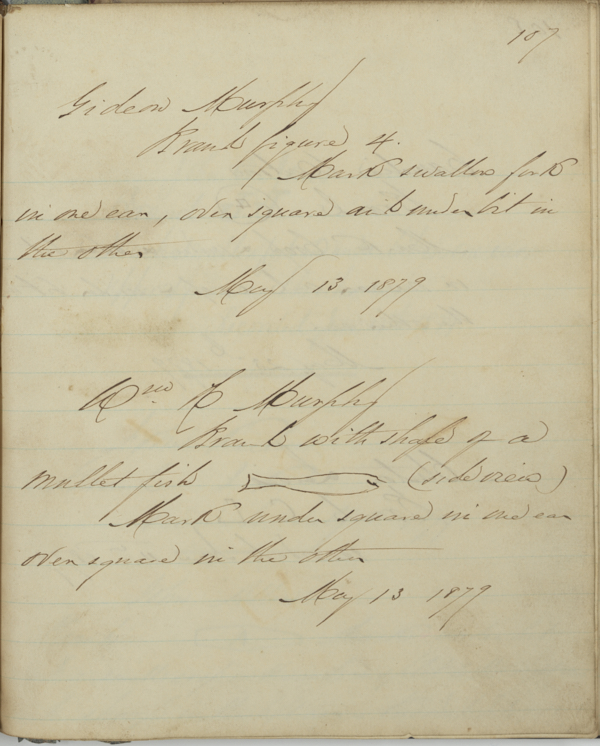 107
Gideon Murphy
Brand figure 4.
Mark swallow fork
in one ear, over square and under bit in
the other
May 13 1879
Wm H Murphy
Brand with shape of a
mullet fish (side view)
Mark under square in one ear
over square in the other
May 13 1879